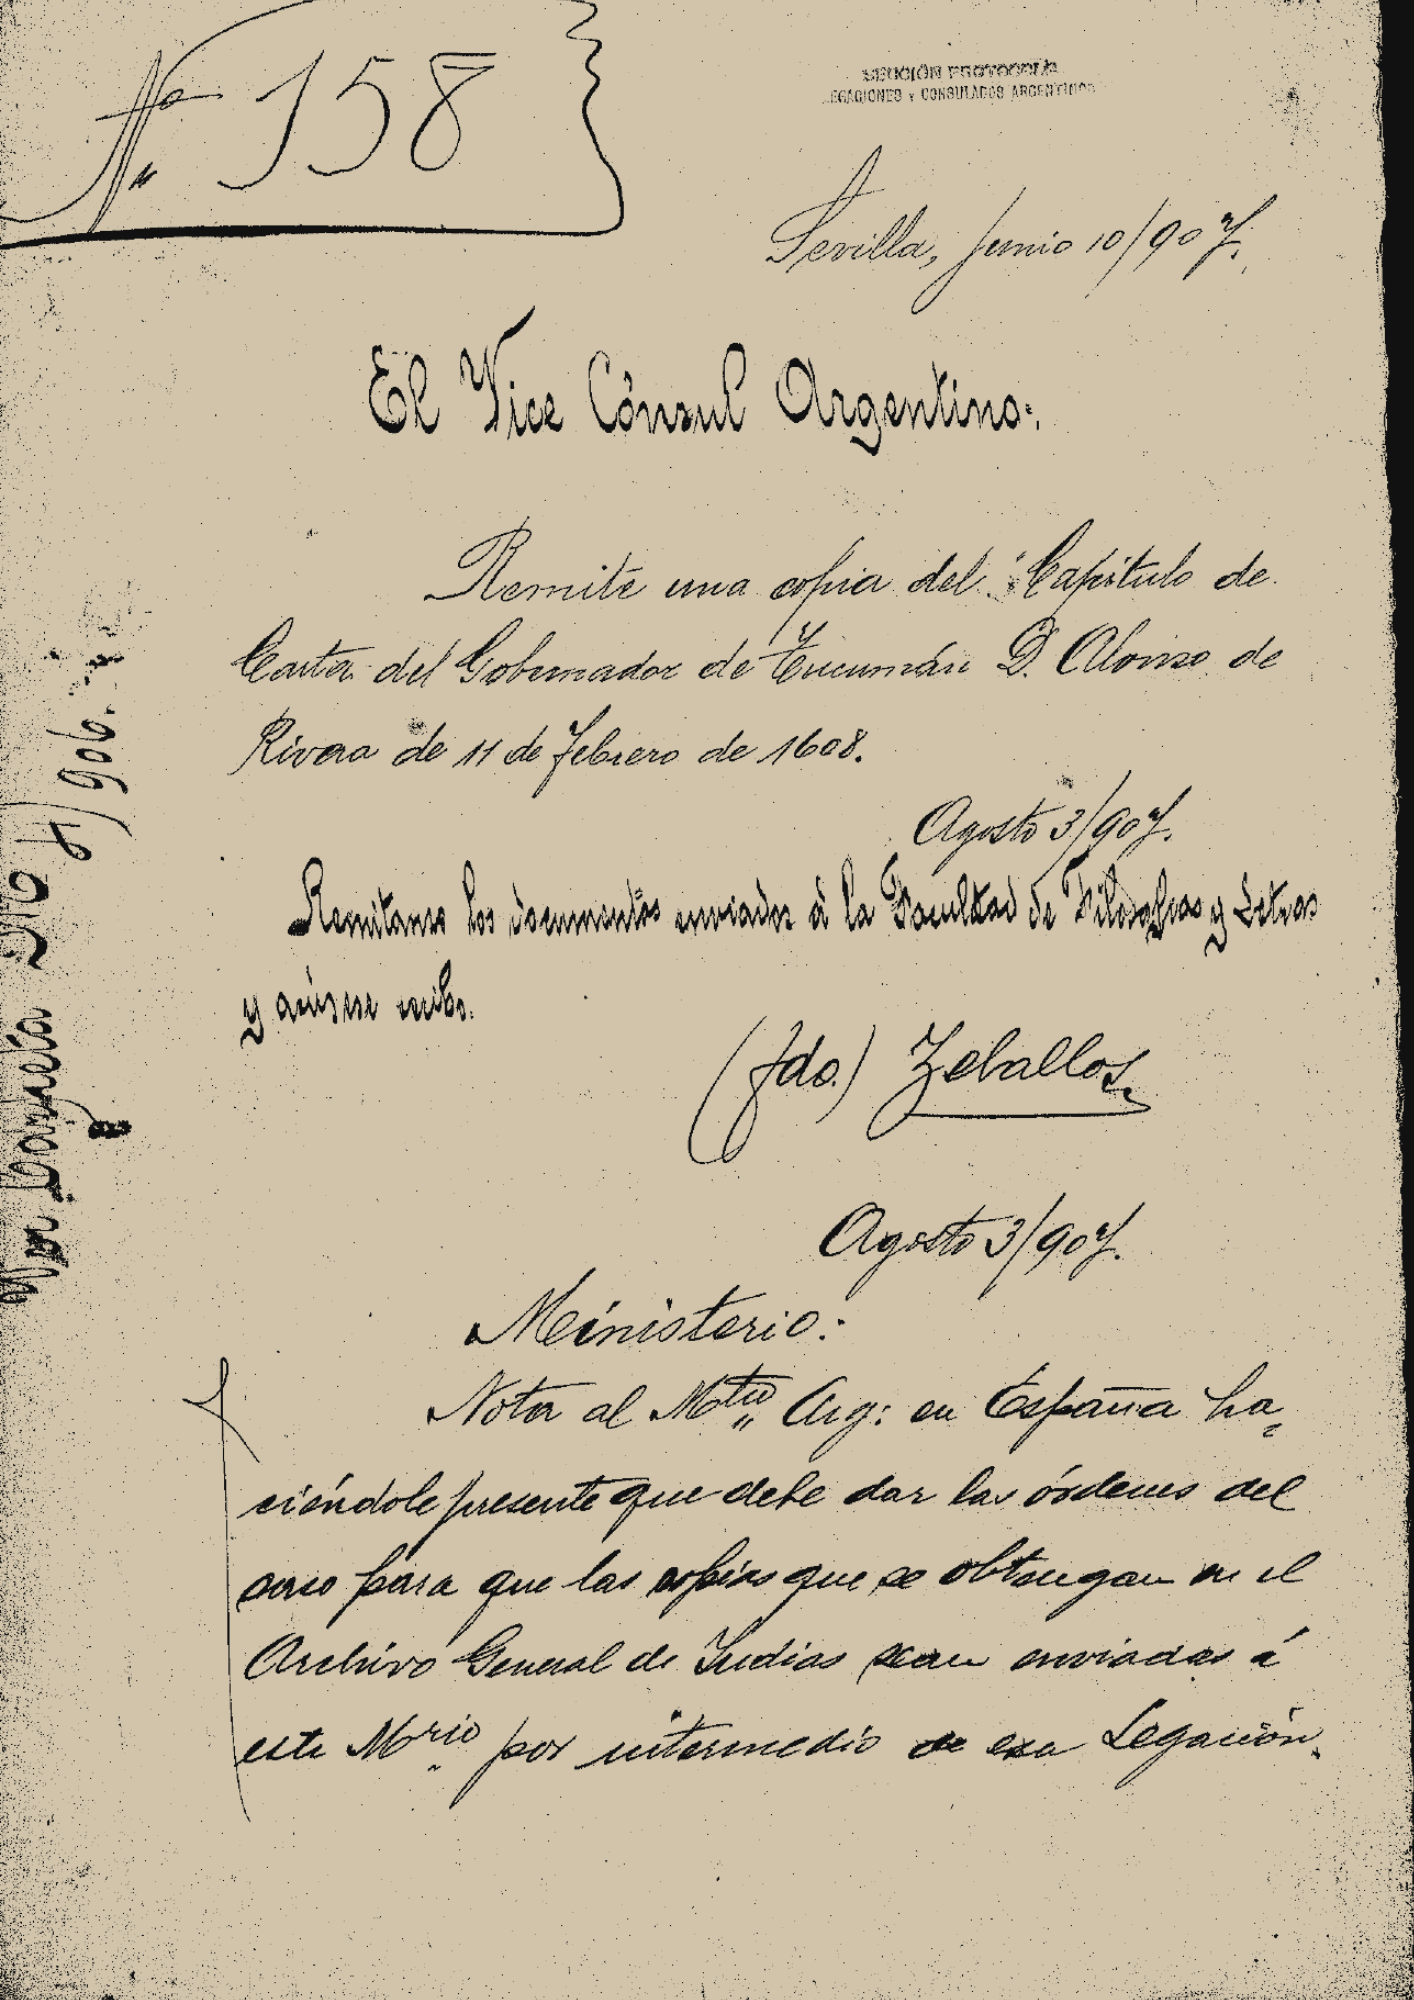 Nº 158
SECCIÓN PROTOCOLO
LEGACIONES Y CONSULADOS ARGENTINOS
Sevilla, Junio 10/907.
El Vice Cónsul Argentino:
Remite una copia del Capítulo de
Carta del Gobernador de Tucumán D. Alonso de
Rivera de 11 de Febrero de 1608.
Agosto 3/907.
Remitanse los documentos enviados á la Facultad de Filosofia y Letras
y avísese recibo.
(fdo.) Zeballos
Agosto 3/907.
Ministerio:
Nota al Mtro Arg: en España ha=
ciéndole presente que debe dar las órdenes del
caso para que las copias que se obtengan en el
Archivo General de Indias sean enviadas á
este Mrio por intermedio de esa Legación.
Carpeta 8/906.